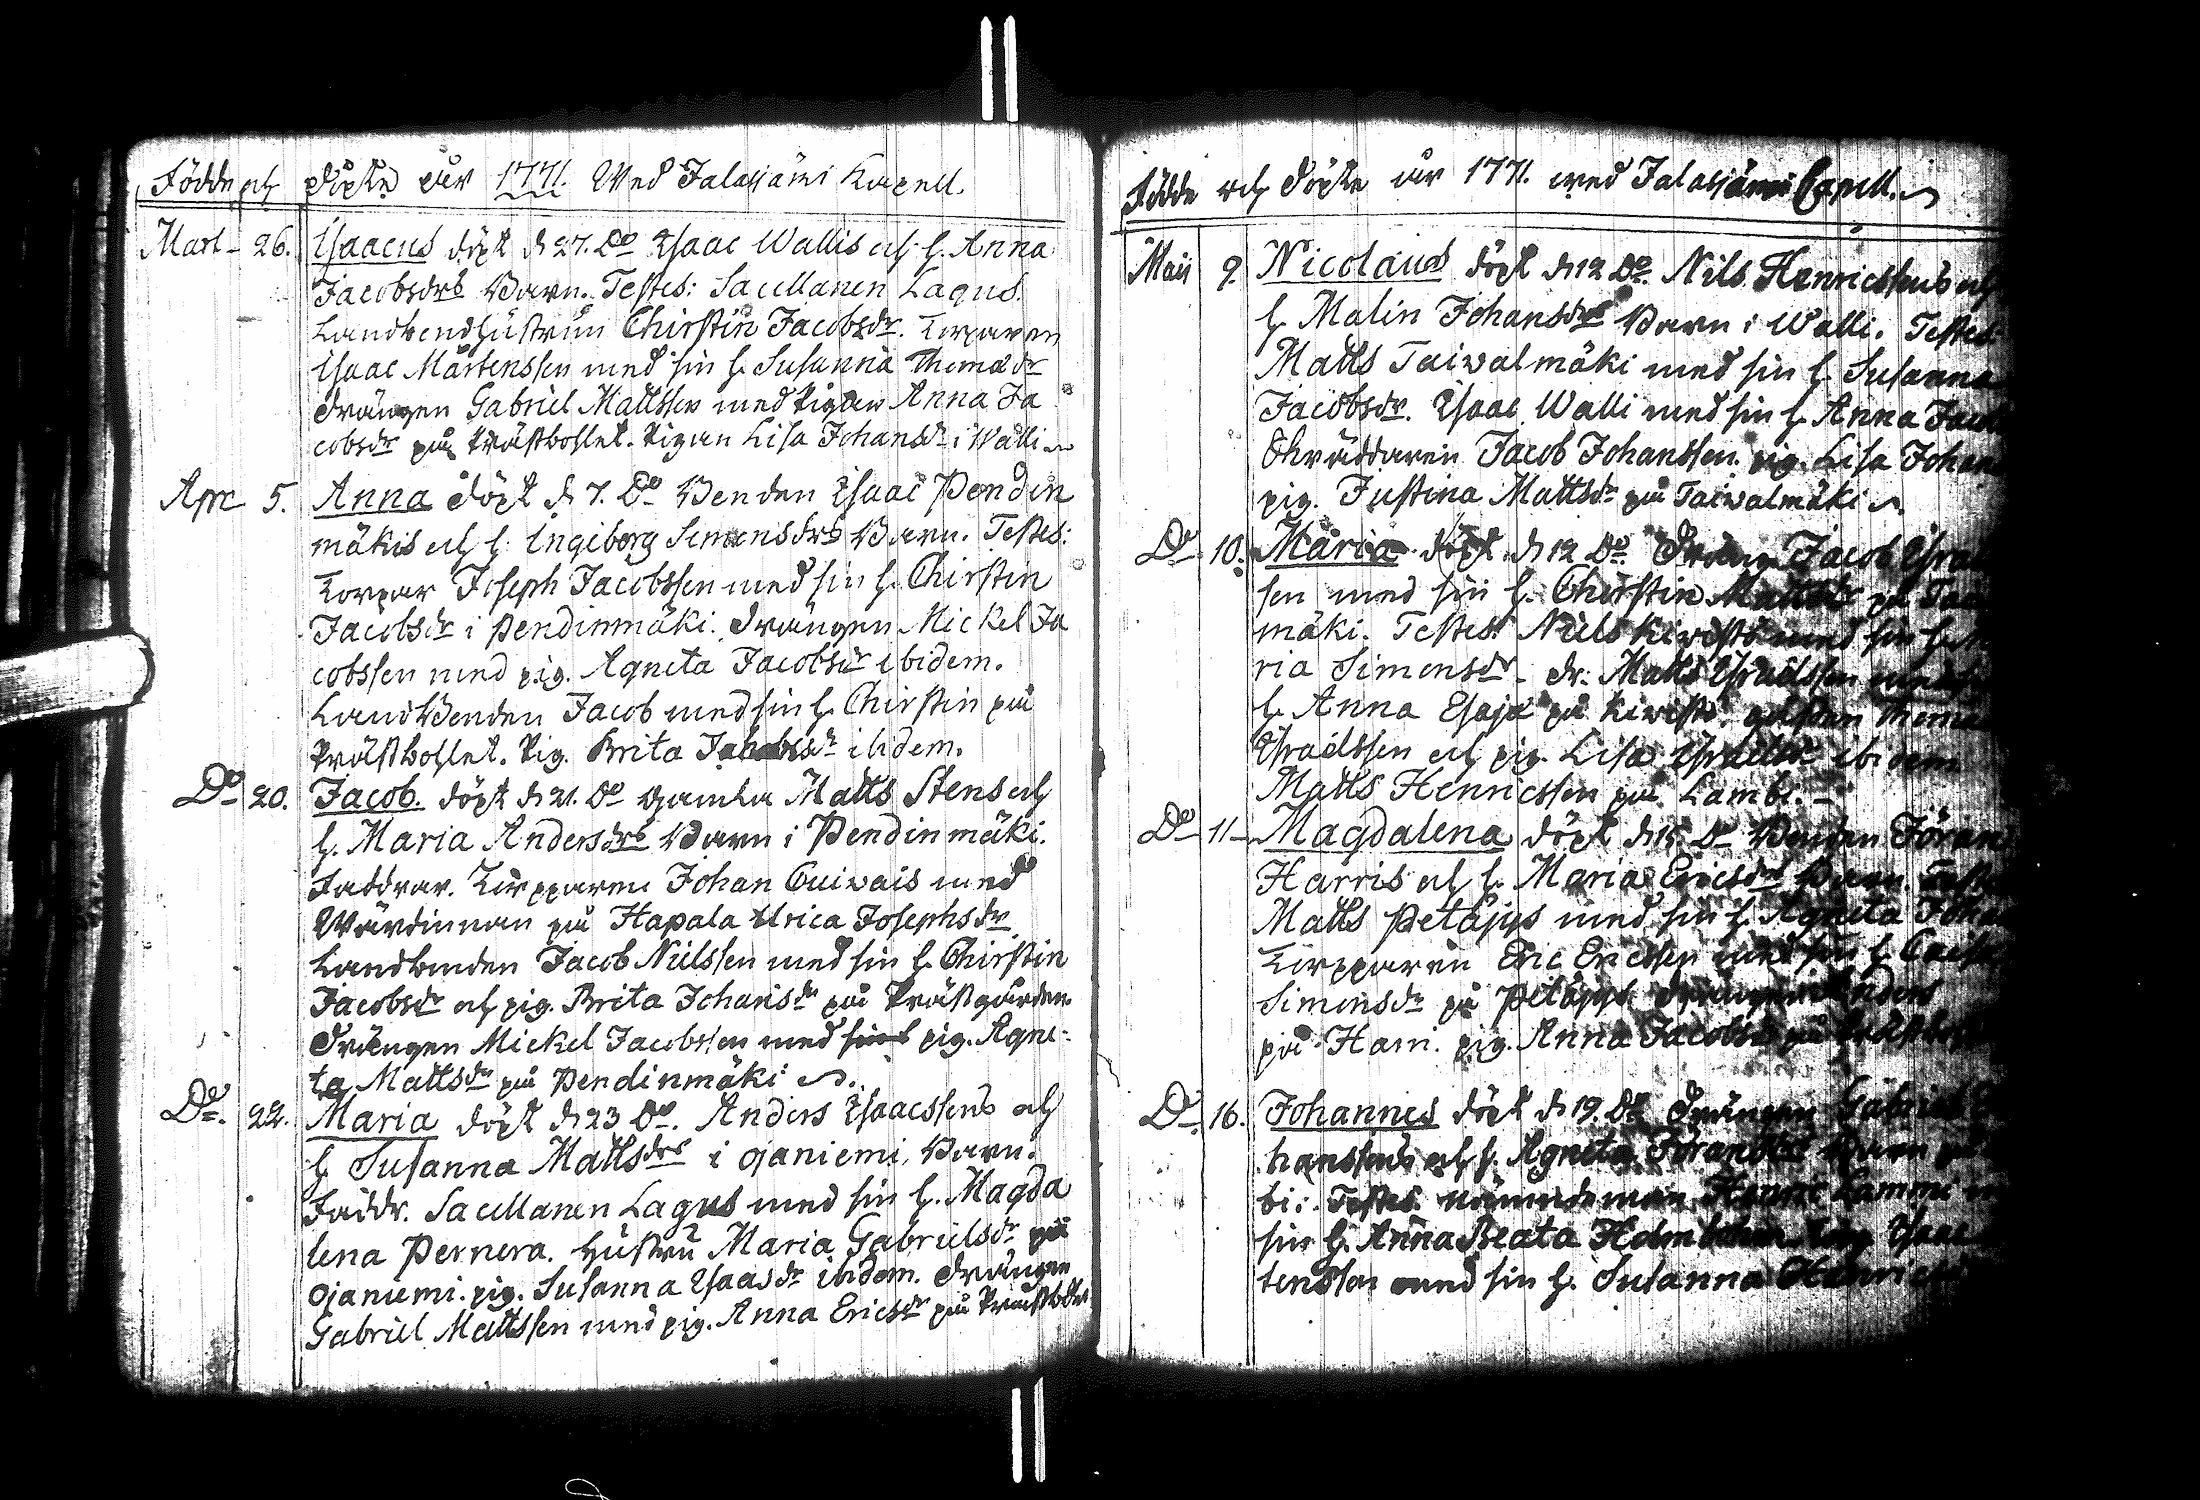 Födde och döpte åhr 1771. Wed Jalasjärvi Kapell.
Mart - 26. Isaacus döpt d 27. Do Isaac Wallis och h. Anna
Jacobsdrs Barn. Testes: Sacellanen Lagus.
Landbondhustrun Chirstin Jacobsdr. Torparen
Isaac Mårtenssen med sin h. Susanna Thomædr
drängen Gabriel Mattssen med pigan Anna Ja
cobsdr på Prästbohlet. Pigan Lisa Johansdr i Walli
Apr 5. Anna döpt d 7. Do Bonden Isaac Pendin
mäkis och h. Ingeborg Simonsdrs Barn. Testes:
Torpar Joseph Jacobssen med sin h. Chirstin
Jacobsdr i Pendinmäki. drängen Mickel Ja
cobssen med pig. Agneta Jacobsdr ibidem.
Landbonden Jacob med sin h. Chirstin på
Prästbohlet. Pig. Brita ibidem.
Do 20. Jacob. döpt d 21. Do Matts Stens och
h. Maria Andersdrs Barn i Pendinmäki.
Faddrar. Torpparen Johan Cuivais med
Wärdinnan på Hapala Ulrica Josephsdr
Landbonden Jacob Nielssen med sin h. Chirstin
Jacobsdr och pig. Brita Johansdr på Prästgården
Drängen Mickel Jacobssen med pig. Agne-
ta Mattsdr på Pendinmäki.
Do. 22. Maria döpt d 23 Do. Anders Isaacssens och
h Susanna Mattsdrs i Ojaniemi, Barn.
Faddr. Sacellanen Lagus med sin h. Magda
lena Pernera. hustru Maria Gabrielsdr på
Ojaniemi. pig. Susanna Isaacsdr ibidem. Drängen
Gabriel Mattssen med pig. Anna Ericsdr på
Födde och döpte åhr 1771. wed Jalasjärvi Capell.
Maii 9. Nicolaus döpt d 12 Do. Nils Henricssens och
h. Malin Johansdrs Barn i Walli. Testes:
Matts Taiwalmäki med sin h. Susanna
Jacobsdr. Isaac Walli med sin h. Anna
Skräddaren Jacob Johanssen. pig. Lisa
pig. Justina Mattsdr på Taiwalmäki
Do 10. Maria döpt d 12 Do. Dräng Jacob
sen med sin h. Chirstin på
mäki. Testes: Niels med sin h.
ria Simonsdr. dr. Matts Israelssen
h. Anna Esaja på
Israelssen och pig. Lisa ibidem
Matts Henricssen på Lambi.
Do 11 Magdalena döpt d 15 Do Bonden
Harris och h. Maria Ericsdrs Barn.
Matts Petäjys med sin h. Agneta
Torpparen Eric Ericssen med sin h.
Simonsdr på Petäjys. drängen Anders
på Harri. pig. Anna Jacobsdr på
Do 16. Johannes döpt d 19. Do Drängen Gabriel
hanssens och h. Agneta Barn
bi: Testes Nämndeman Lammi
sin h. Anna Beata
tenssen med sin h. Susanna